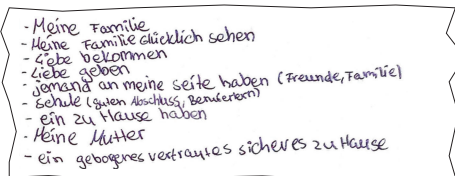 - Meine Familie
- Meine Familie Glücklich sehen
- Liebe bekommen
- Liebe geben
- jemand an meine seite haben (Freunde, Familie)
- schule (guten Abschluss, Berufertern)
- ein zu Hause haben
- Meine Mutter
- ein geborgenes vertrautes sicheres zu Hause